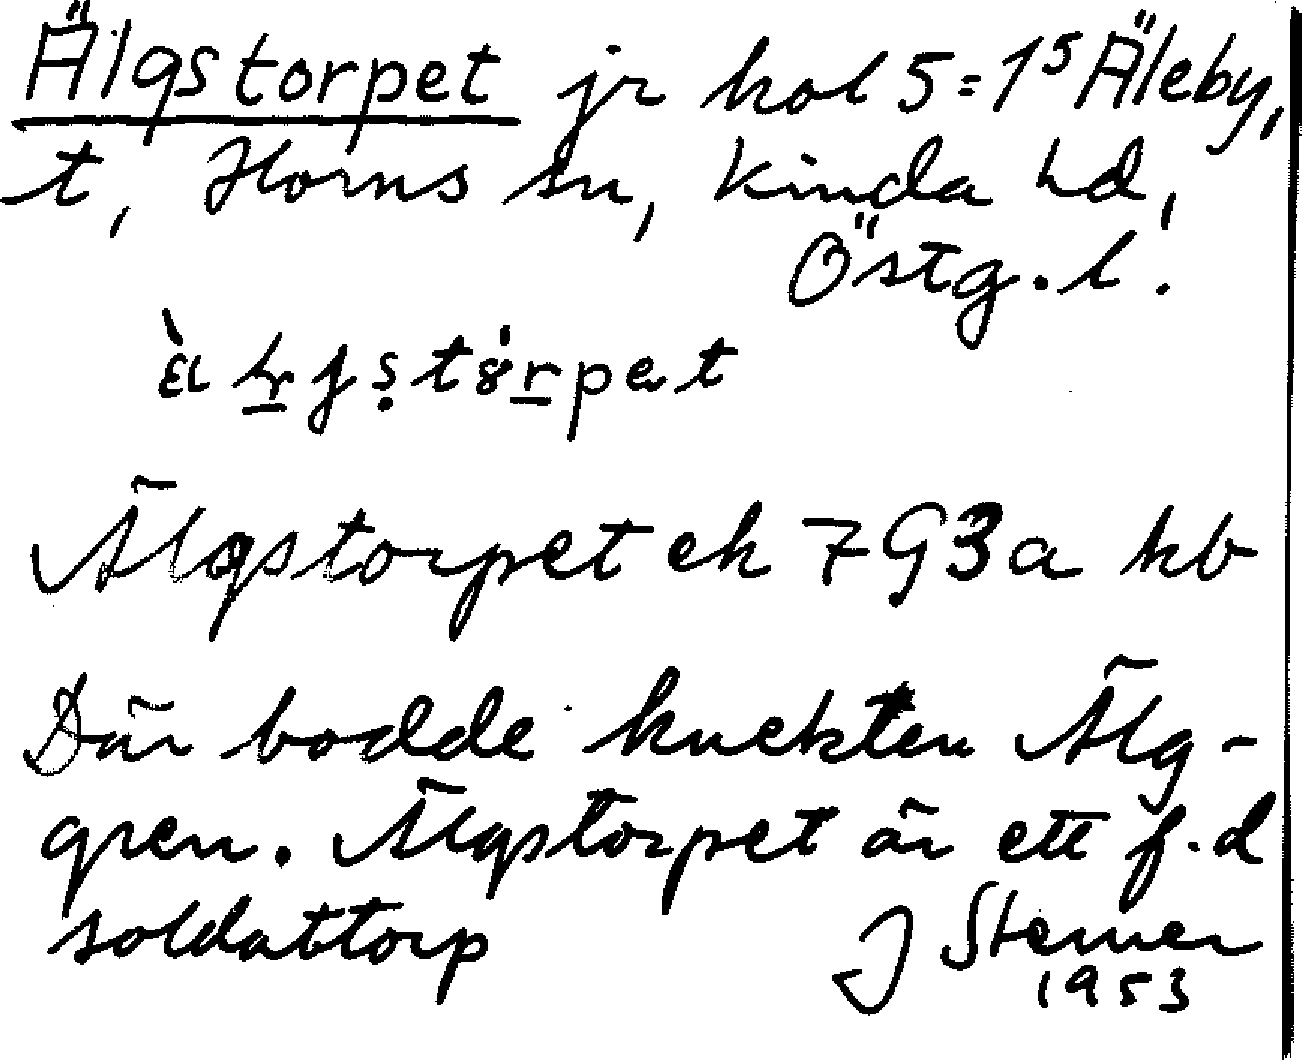 Älgstorpet jr kol 5 = 1⁵ Äleby,
t, Horns sn, Kinda hd,
Östg. l.
Älgstorpet ek 7 G 3 a kb
Där bodde knekten Älg-
gren. Älgstorpet är ett f.d
soldattorp J Sterner
1953